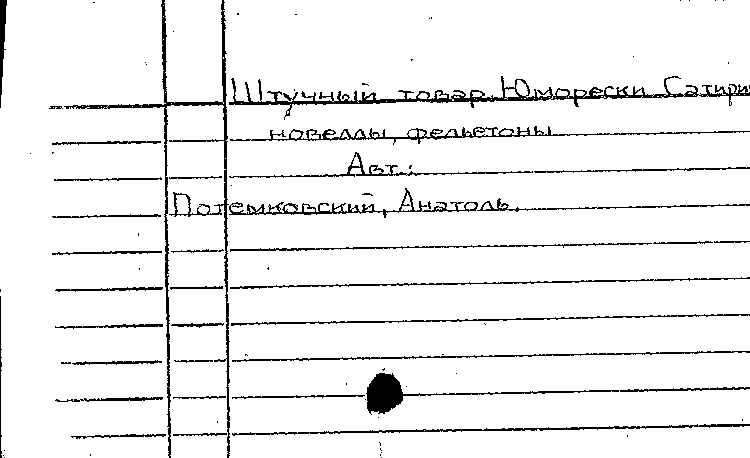 Штучный товар. Юморески. Сатири
новеллы, фельетоны
Авт.:
Потемковский, Анатоль.